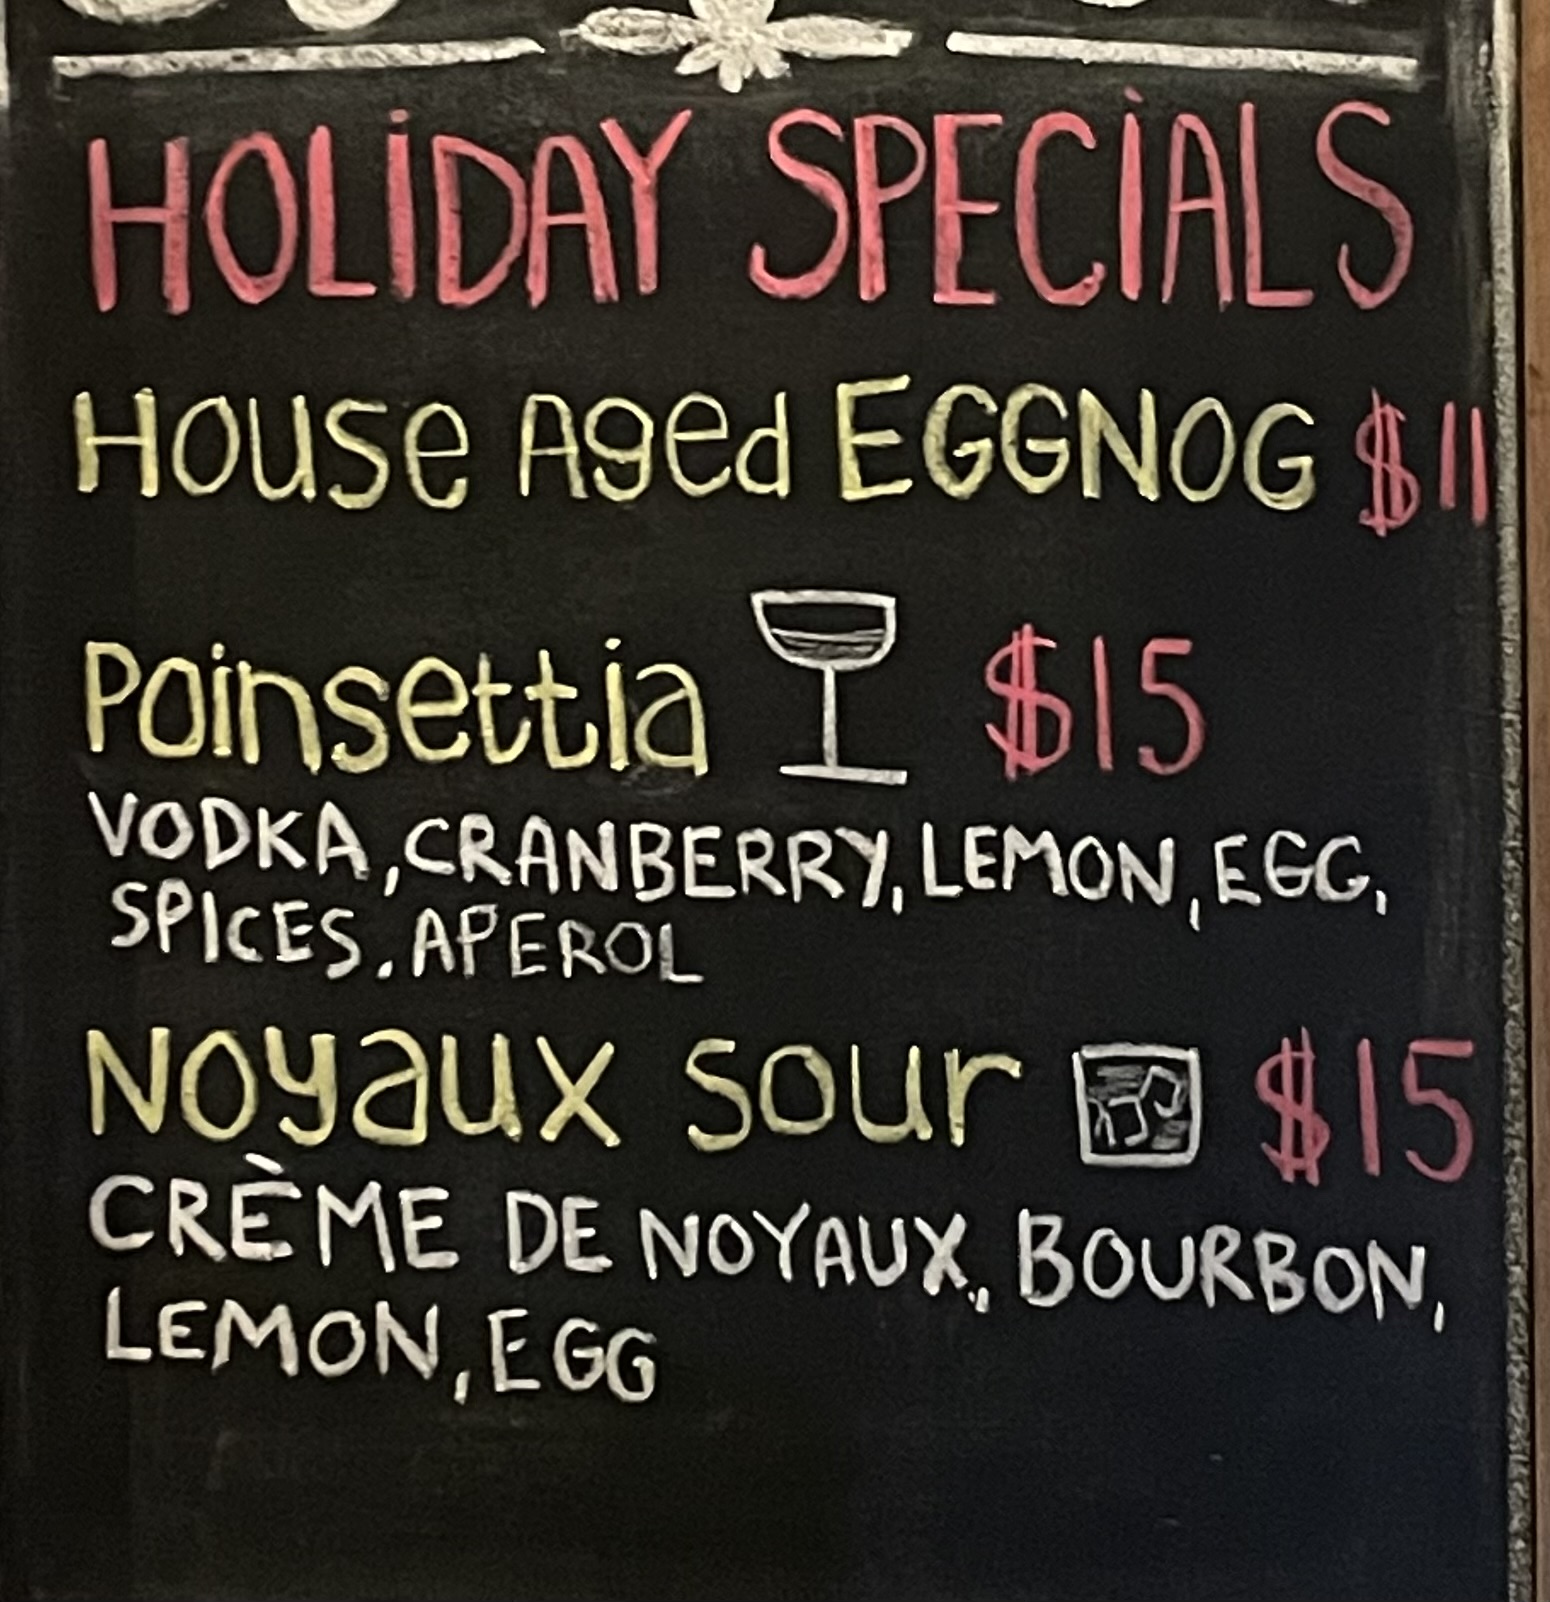 HOLIDAY SPECIALS
House Aged EGGNOG $11
Poinsettia $15
VODKA, CRANBERRY, LEMON, EGG,
SPICES, APEROL
Noyaux sour $15
CRÈME DE NOYAUX, BOURBON,
LEMON, EGG